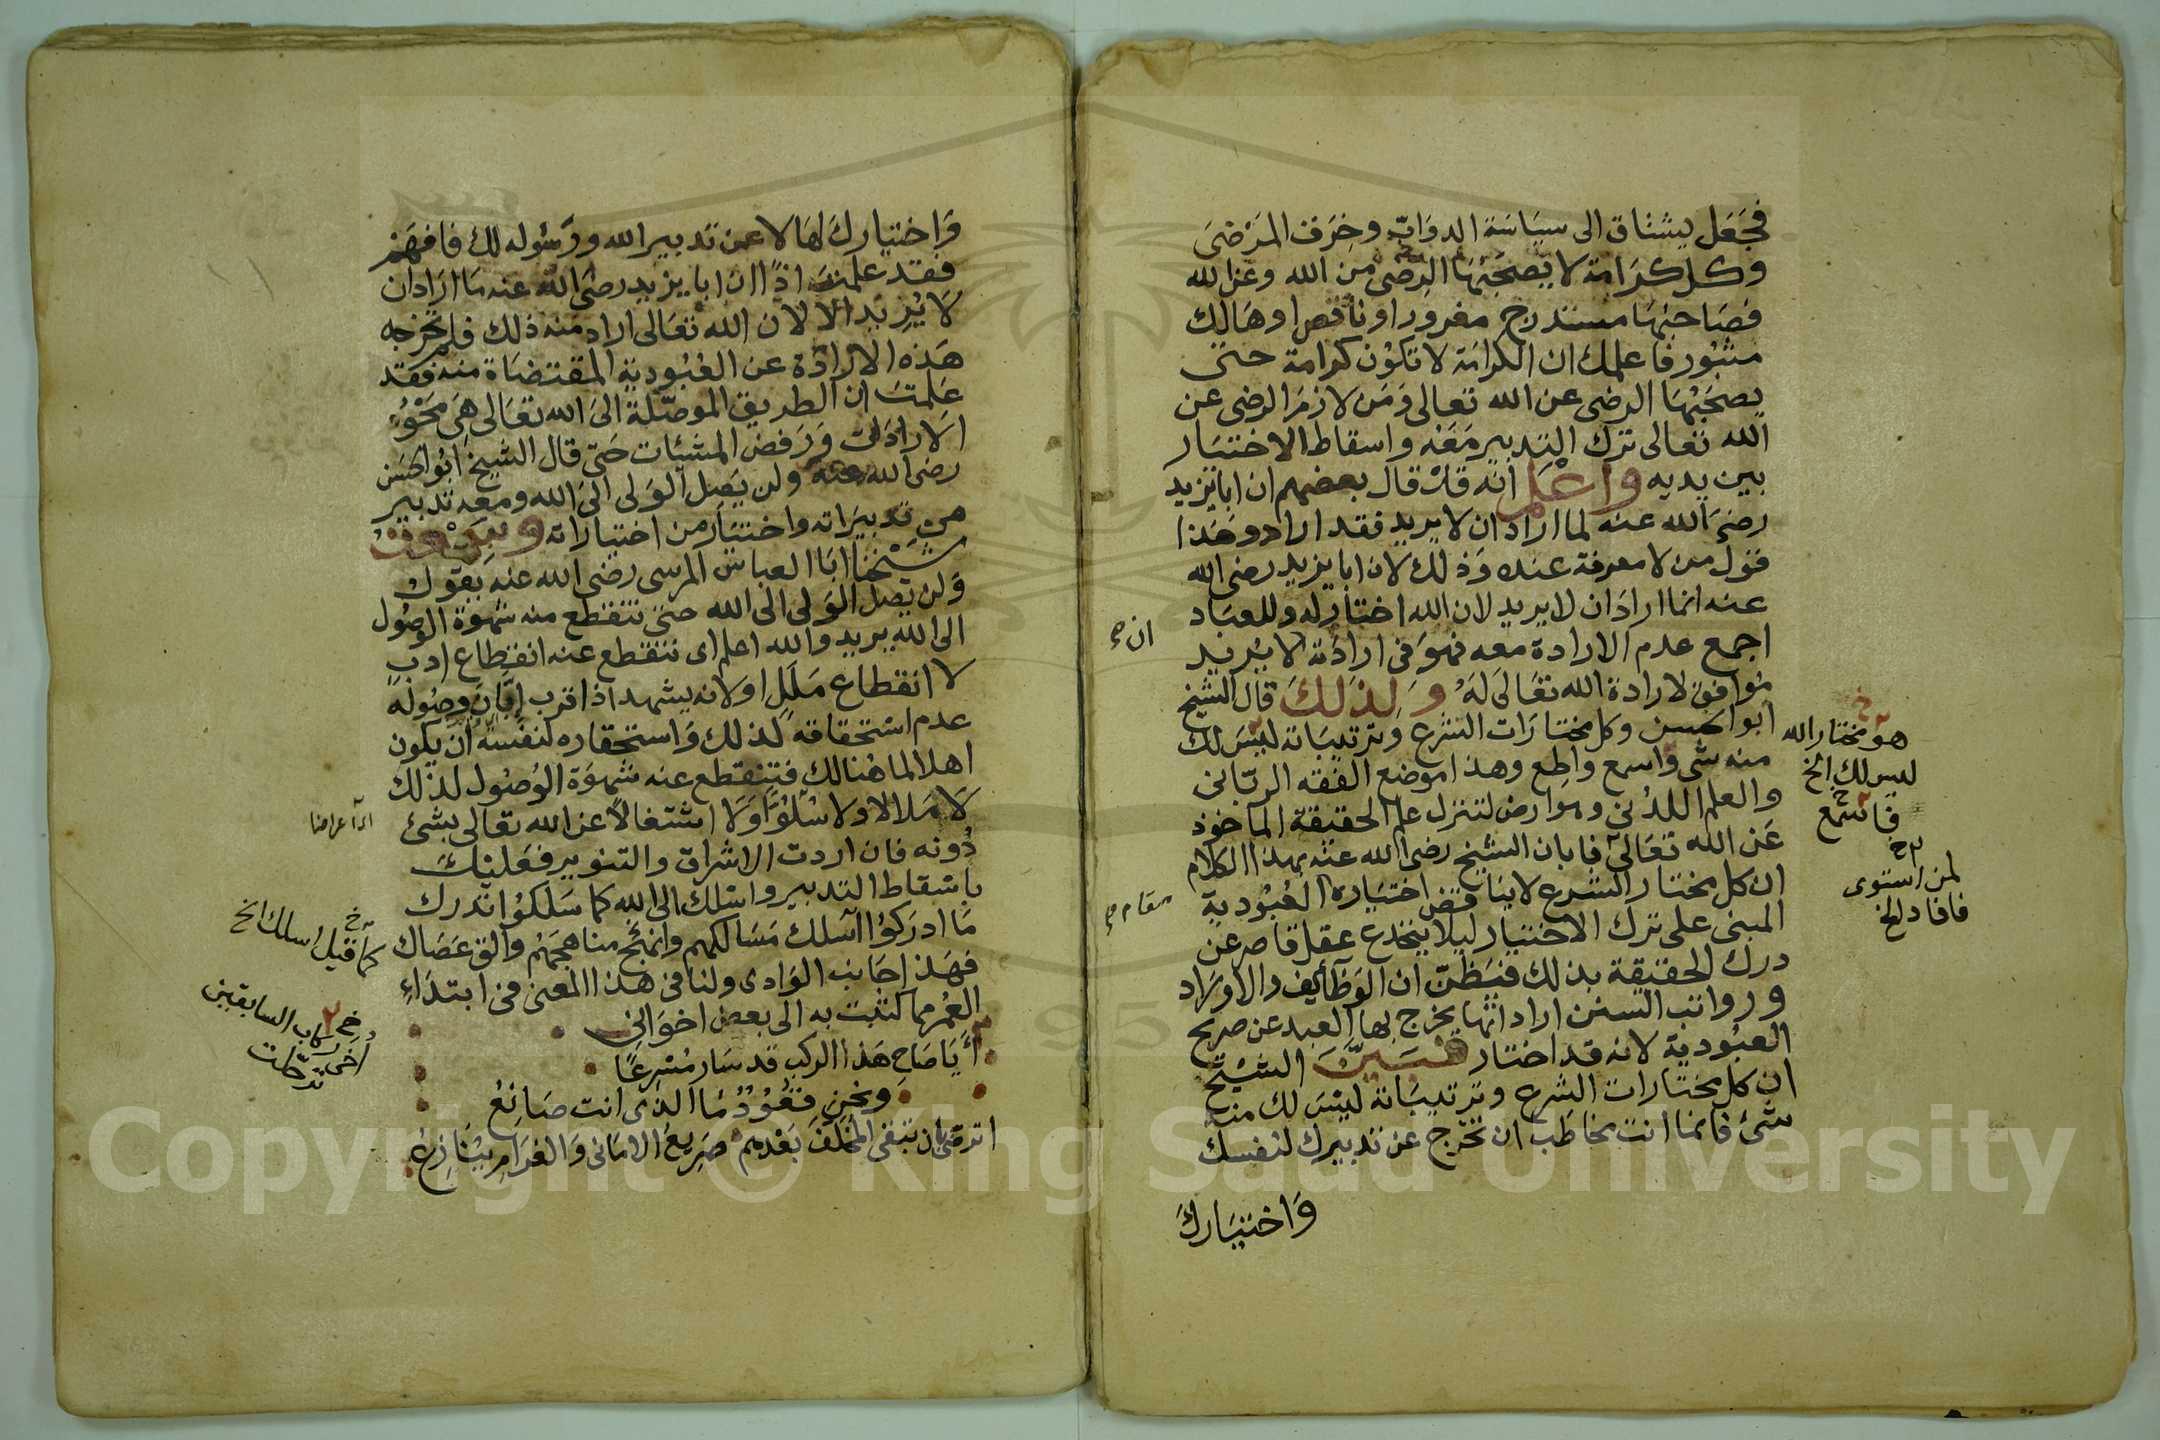 فجعل يشتاق الى سياسة الدواب وخرق المرضى
وكل كرامة لا يصحبها الرضى من الله وعن الله
فصاحبها مستدرج مغرور او ناقص او هالك
مثبور فاعلمك ان الكرامة لا تكون كرامة حتى
يصحبها الرضى عن الله تعالى ومن لازم الرضى عن
الله تعالى ترك التدبير معه واسقاط الاختيار
بين يديه واعلم انه قد قال بعضهم ان ابا يزيد
رضى الله عنه لما اراد ان لا يريد فقد اراد وهذا
قول من لا معرفة عنده وذلك لان ابا يزيد رضى الله
عنه انما اراد ان لا يريد لان الله اختار له وللعباد
اجمع عدم الارادة معه فهو فى ارادته الا يريد
موافق لارادة الله تعالى له ولذلك قال الشيخ
ابو الحسن وكل مختارات الشرع وترتيباته ليس لك
منه شى واسمع واطع وهذا موضع الفقه الربانى
والعلم اللدنى وهو ارض لتنزل علم الحقيقة الماخوذ
عن الله تعالى فابان الشيخ رضى الله عنه بهذا الكلام
ان كل مختار الشرع لا يناقض اختياره العبودية
المبنى على ترك الاختيار ليلا ينخدع عقل قاصر عن
درك الحقيقة بذلك فيظن ان الوظآئف والاوراد
ورواتب السنن ارادتها يخرج بها العبد عن صريح
العبودية لانه قد اختار فبين الشيخ
ان كل مختارات الشرع وترتيباته ليس لك منه
شئ فانما انت مخاطب ان تخرج عن تدبيرك لنفسك
واختيارك
ان صح
مقام صح
خ
هو مختار الله
ليس لك الخ
فاسمع
خ
لمن استوى
فافاد الخ
واختيارك لها لا عن تدبير الله ورسوله لك فافهم
فقد علمت اذا ان ابا يزيد رضى الله عنه ما اراد ان
لا يريد الا لان الله تعالى اراد منه ذلك فلم تخرجه
هذه الارادة عن العبودية المقتضاة منه فقد
علمت ان الطريق الموصلة الى الله تعالى هى محو
الارادات ورفض المشئات حتى قال الشيخ ابو الحسن
رضى الله عنه ولن يصل الولى الى الله ومعه تدبير
من تدبيراته واختيار من اختياراته وسمعت
شيخنا ابا العباس المرسى رضى الله عنه يقول
ولن يصل الولى الى الله حتى تنقطع منه شهوة الوصول
الى الله يريد والله اعلم اى تنقطع عنه انقطاع ادب
لا انقطاع ملل او لانه يشهد اذا قرب ابان وصوله
عدم استحقاقه لذلك واستحقاره لنفسه ان يكون
اهلا لما هنالك فتنقطع عنه شهوة الوصول لذلك
لا مللا ولا سلوا ولا اشتغالا عن الله تعالى بشئ
دونه فان اردت الاشراق والتنوير فعليك
باسقاط التدبير واسلك الى الله كما سلكوا تدرك
ما ادركوا اسلك مسالكهم وانهج مناهجهم والق عصاك
فهذا جانب الوادى ولنا فى هذا المعنى فى ابتداء
العمر مما كتبت به الى بعض اخوانى
أيا صاح هذا الركب قد سار مسرعا
ونحن قعود ما الذى انت صانع
اترضى ان تبقى المخلف بعدهم صريع الامانى والغرام ينازع
خ
كما قيل اسلك الخ
خ
ركاب السابقين
Copyright © King Saud University